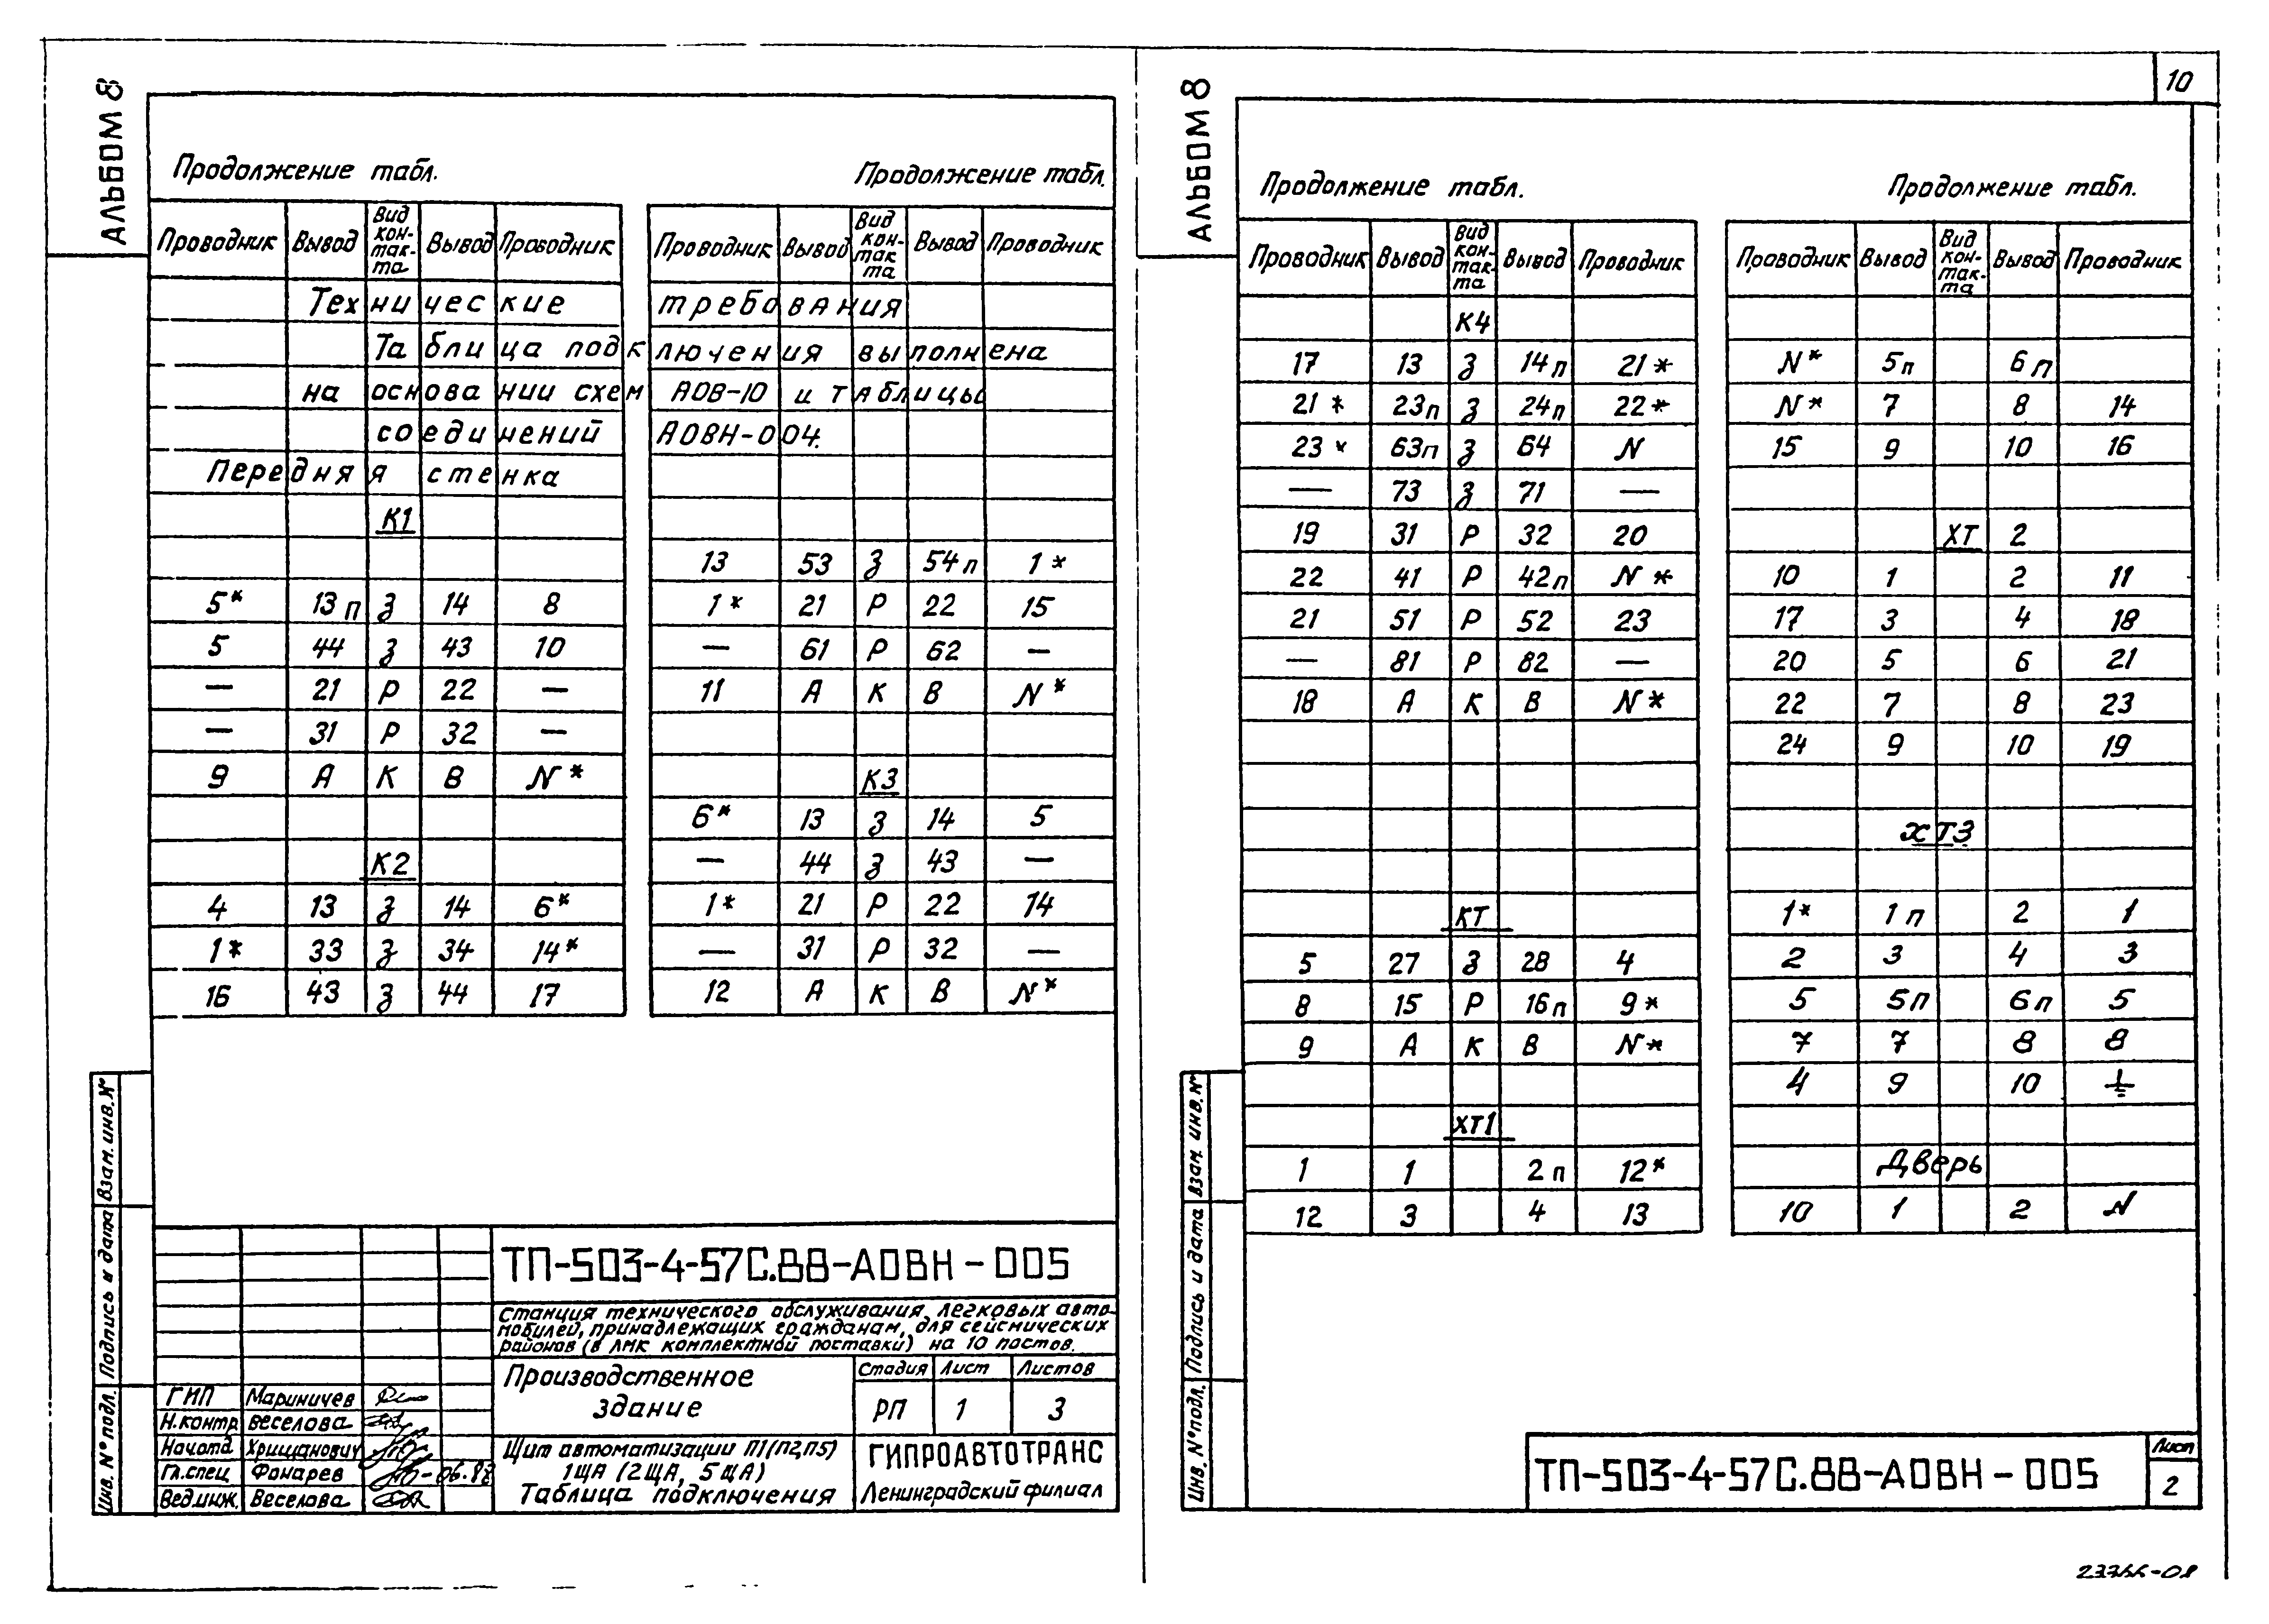 АЛЬБОМ 8
Продолжение табл.
Проводник Вывод Вид кон-так-та Вывод Проводник
Технические
Таблица подк
на основании схем
соединений
Передняя стенка
К1
5* 13п З 14 8
5 44 З 43 10
— 21 Р 22 —
— 31 Р 32 —
9 А К В N*
К2
4 13 З 14 6*
1* 33 З 34 14*
16 43 З 44 17
Продолжение табл.
Проводник Вывод Вид кон-так та Вывод Проводник
требования
лючения выполнена
АОВ-10 и таблицы
АОВН-004.
13 53 З 54п 1*
1* 21 Р 22 15
— 61 Р 62 —
11 А К В N*
К3
6* 13 З 14 5
— 44 З 43 —
1* 21 Р 22 14
— 31 Р 32 —
12 А К В N*
Инв. № подл. Подпись и дата Взам. инв. №
ТП-503-4-57С.88-АОВН-005
Станция технического обслуживания легковых авто-
мобилей, принадлежащих гражданам, для сейсмических
районов (в ЛМК комплектной поставки) на 10 постов.
Производственное
здание
Стадия Лист Листов
РП 1 3
Щит автоматизации П1(П2,П5)
1ЩА (2ЩА, 5ЩА)
Таблица подключения
ГИПРОАВТОТРАНС
Ленинградский филиал
ГИП Мариничев
Н.контр. Веселова
Нач.отд. Хрищанович
Гл.спец. Фонарев 06.88
Вед.инж. Веселова
10
АЛЬБОМ 8
Продолжение табл.
Проводник Вывод Вид кон-так-та Вывод Проводник
К4
17 13 З 14п 21*
21* 23п З 24п 22*
23* 63п З 64 N
— 73 З 71 —
19 31 Р 32 20
22 41 Р 42п N*
21 51 Р 52 23
— 81 Р 82 —
18 А К В N*
КТ
5 27 З 28 4
8 15 Р 16п 9*
9 А К В N*
ХТ1
1 1 2п 12*
12 3 4 13
Продолжение табл.
Проводник Вывод Вид кон-так-та Вывод Проводник
N* 5п 6п
N* 7 8 14
15 9 10 16
ХТ 2
10 1 2 11
17 3 4 18
20 5 6 21
22 7 8 23
24 9 10 19
ХТ3
1* 1п 2 1
2 3 4 3
5 5п 6п 5
7 7 8 8
4 9 10 ⏚
Дверь
10 1 2 N
Инв. № подл. Подпись и дата Взам. инв. №
ТП-503-4-57С.88-АОВН-005
Лист
2
23766-08